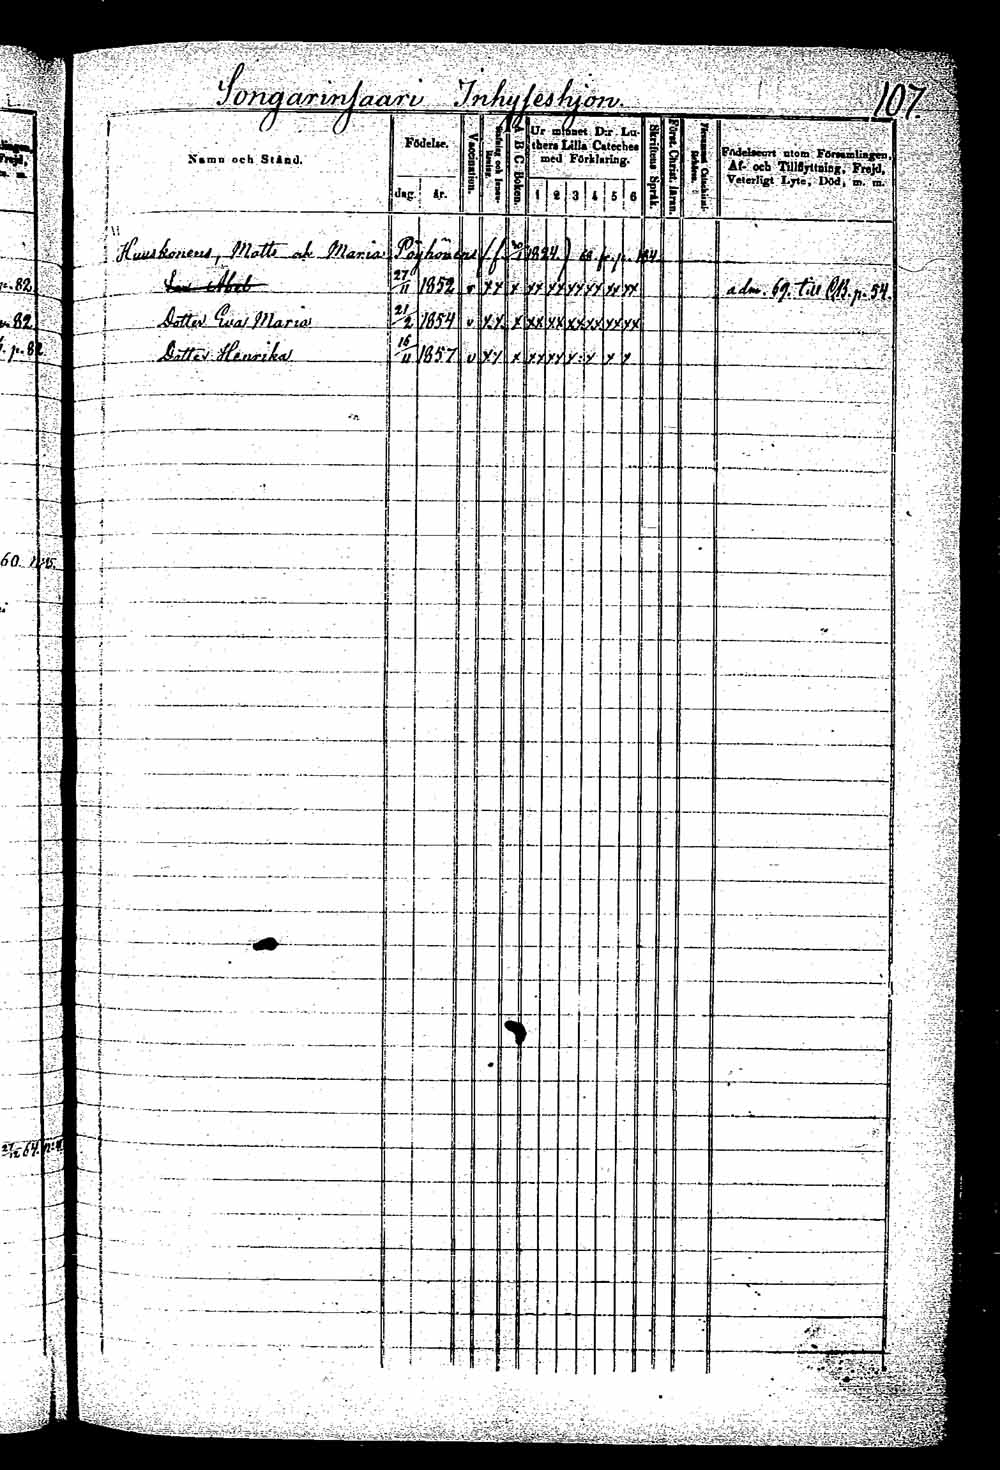 Songarinsaari Inhyseshjon.
107.
Namn och Stånd.
Födelse.
dag.
år.
Vaccination.
A B C-Boken.
Ur minnet D:r Lu-
thers Lilla Cateches
med Förklaring.
1 2 3 4 5 6
Skriftens Språk.
Förest. Christ. läran.
Födelseort utom Församlingen,
Af- och Tillflyttning, Frejd,
Veterligt Lyte, Död, m. m.
Huuskonens, Matts och Maria Pöyhönens (f. 1824)
27/11 1852 v xx x xx xx xx xx xx xx adm. 69. till p. 54.
Dotter Eva Maria 21/2 1854 v xx x xx xx xx xx xx xx
Dotter Henrika 16/11 1857 v xx x xx xx x x x x
p. 82
82
p. 82
60
27/12 64.